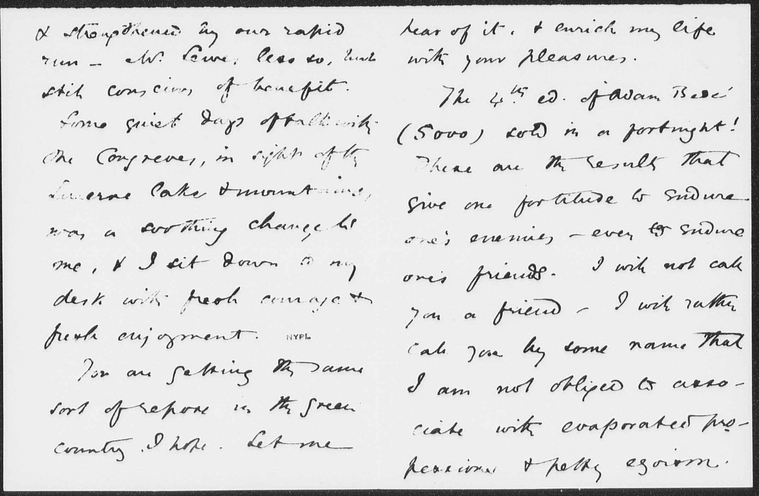 & strengthened by our rapid
run — Mr. Lewes, less so, but
still conscious of benefit.
Some quiet days of talk with
the Congreves, in sight of the
Lucerne lake & mountains,
was a soothing change to
me, & I sit down to my
desk with fresh courage &
fresh enjoyment.
NYPL
You are getting the same
sort of repose in the green
country, I hope. Let me
hear of it, & enrich my life
with your pleasures.
The 4th ed. of 'Adam Bede'
(5000) sold in a fortnight!
These are the results that
give one fortitude to endure
one's enemies — even to endure
one's friends. I will not call
you a friend — I will rather
call you by some name that
I am not obliged to asso-
ciate with evaporated pro-
fessions & petty egoism.